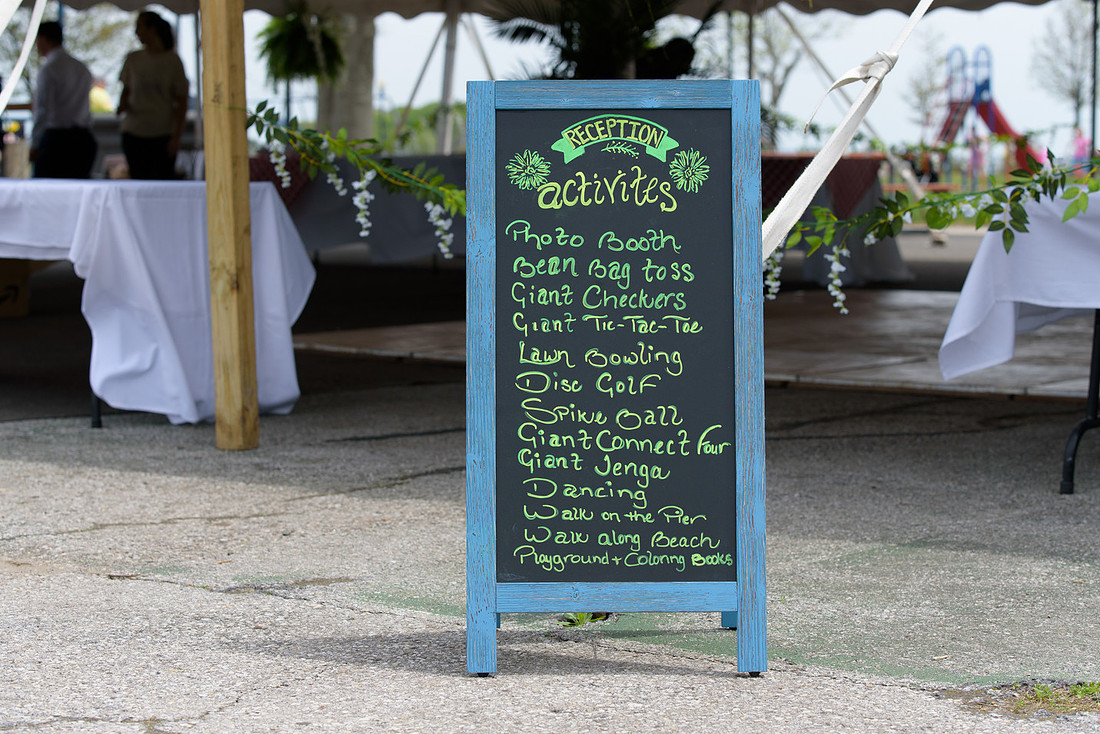 RECEPTION
activites
Photo Booth
Bean Bag toss
Giant Checkers
Giant Tic-Tac-Toe
Lawn Bowling
Disc Golf
Spike Ball
Giant Connect Four
Giant Jenga
Dancing
Walk on the Pier
Walk along Beach
Playground + Coloring Books